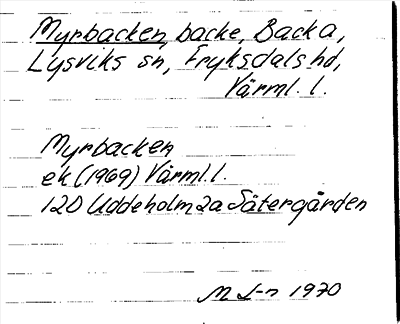 Myrbacken, backe, Backa,
Lysviks sn, Fryksdals hd,
Värml. l.
Myrbacken
ek (1969) Värml. l.
12D Uddeholm 2a Sätergården
M L-n 1970